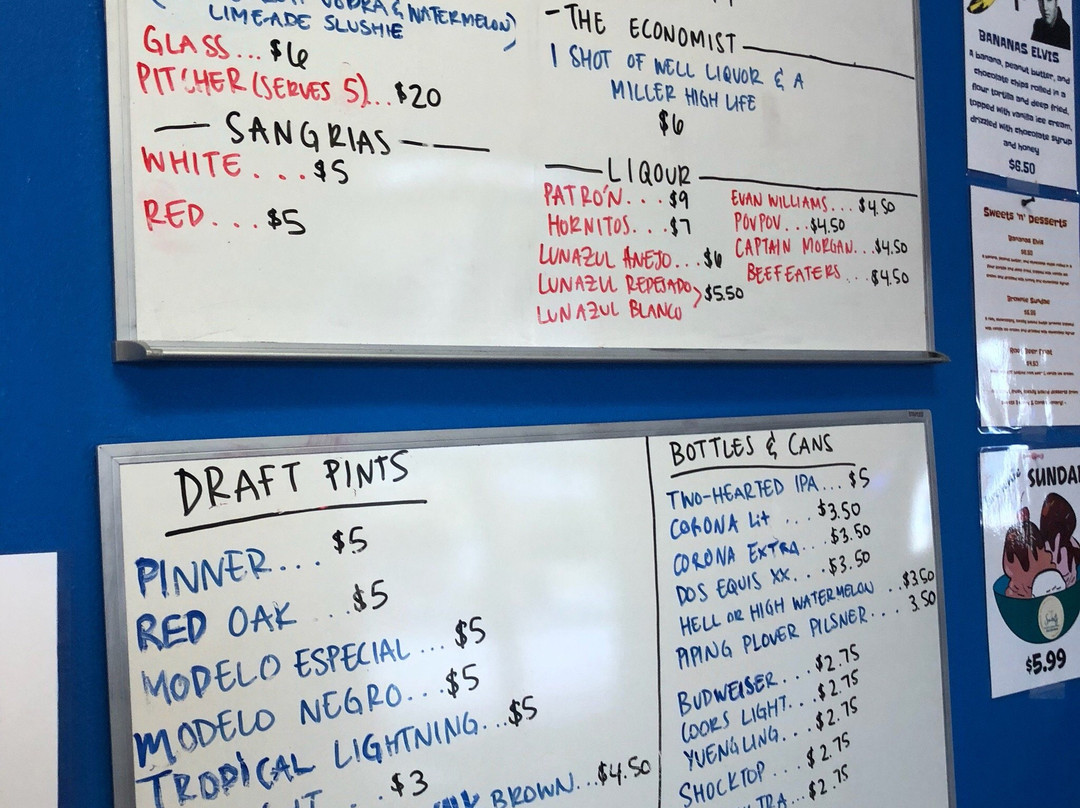 VODKA & WATERMELON)
LIMEADE SLUSHIE
GLASS... $6
PITCHER (SERVES 5)... $20
— SANGRIAS —
WHITE.... $5
RED.... $5
- THE ECONOMIST
1 SHOT OF WELL LIQUOR & A
MILLER HIGH LIFE
$6
LIQOUR
PATRÓN... $9
HORNITOS... $7
LUNAZUL ANEJO... $6
LUNAZUL REPEJADO
LUNAZUL BLANCO
> $5.50
EVAN WILLIAMS... $4.50
POVPOV... $4.50
CAPTAIN MORGAN... $4.50
BEEFEATERS... $4.50
DRAFT PINTS
PINNER... $5
RED OAK ... $5
MODELO ESPECIAL ... $5
MODELO NEGRO... $5
TROPICAL LIGHTNING... $5
$3
BROWN... $4.50
BOTTLES & CANS
TWO-HEARTED IPA.... $5
CORONA Lit .... $3.50
CORONA EXTRA... $3.50
DOS EQUIS XX... $3.50
HELL OR HIGH WATERMELON ... $3.50
PIPING PLOVER PILSNER... 3.50
BUDWEISER.... $2.75
COORS LIGHT... $2.75
YUENGLING... $2.75
SHOCKTOP .... $2.75
$2.75
BANANAS ELVIS
A banana, peanut butter, and
chocolate chips rolled in a
flour tortilla and deep fried,
topped with vanilla ice cream,
drizzled with chocolate syrup
and honey
$6.50
Sweets 'n' Desserts
Bananas Elvis
$6.50
Brownie Sundae
Root Beer Float
SUNDA
$5.99